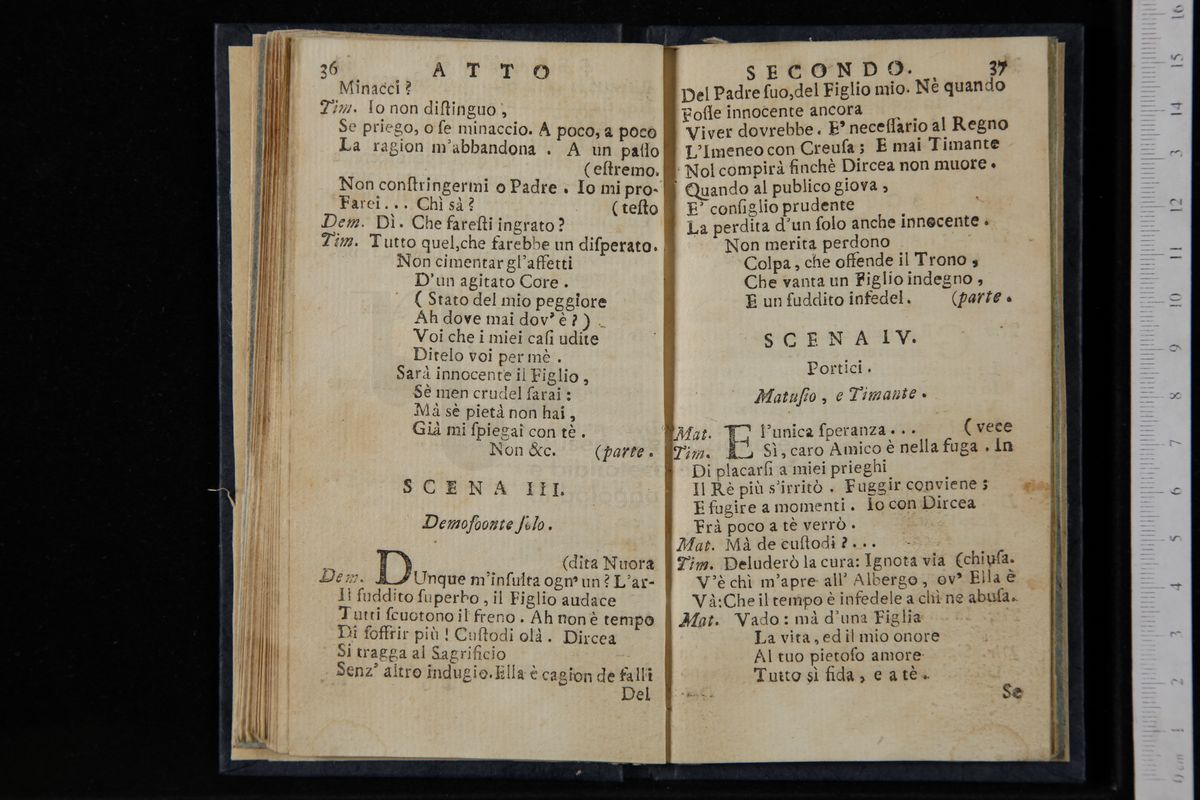 36 ATTO
Minacci ?
Tim. Io non distinguo ,
Se priego, o se minaccio. A poco, a poco
La ragion m'abbandona . A un passo
(estremo.
Non constringermi o Padre . Io mi pro-
Farei... Chì sà ? (testo
Dem. Dì. Che faresti ingrato ?
Tim. Tutto quel,che farebbe un disperato.
Non cimentar gl'affetti
D'un agitato Core .
( Stato del mio peggiore
Ah dove mai dov' è ? )
Voi che i miei casi udite
Ditelo voi per mè .
Sarà innocente il Figlio ,
Sè men crudel sarai :
Mà sè pietà non hai ,
Già mi spiegai con tè .
Non &c. (parte .
SCENA III.
Demofoonte solo .
(dita Nuora
Dem. DUnque m'insulta ogn' un ? L'ar-
Il suddito superbo , il Figlio audace
Tutti scuotono il freno . Ah non è tempo
Di soffrir più ! Custodi olà . Dircea
Si tragga al Sagrificio
Senz' altro indugio. Ella è cagion de falli
Del
SECONDO. 37
Del Padre suo,del Figlio mio. Nè quando
Fosse innocente ancora
Viver dovrebbe . E' necessario al Regno
L'Imeneo con Creusa ; E mai Timante
Nol compirà finchè Dircea non muore .
Quando al publico giova ,
E' consiglio prudente
La perdita d'un solo anche innocente .
Non merita perdono
Colpa , che offende il Trono ,
Che vanta un Figlio indegno ,
E un suddito infedel . (parte .
SCENA IV.
Portici .
Matusio , e Timante .
Mat. E l'unica speranza ... ( vece
Tim. Sì , caro Amico è nella fuga . In
Di placarsi a miei prieghi
Il Rè più s'irritò . Fuggir conviene ;
E fugire a momenti . Io con Dircea
Frà poco a tè verrò .
Mat. Mà de custodi ? ...
Tim. Deluderò la cura: Ignota via (chiusa.
V'è chì m'apre all' Albergo , ov' Ella è
Và:Che il tempo è infedele a chì ne abusa.
Mat. Vado : mà d'una Figlia
La vita , ed il mio onore
Al tuo pietoso amore
Tutto sì fida , e a tè .
Se
16
15
14
3
12
11
10
9
8
7
6
5
4
3
2
1
0 cm